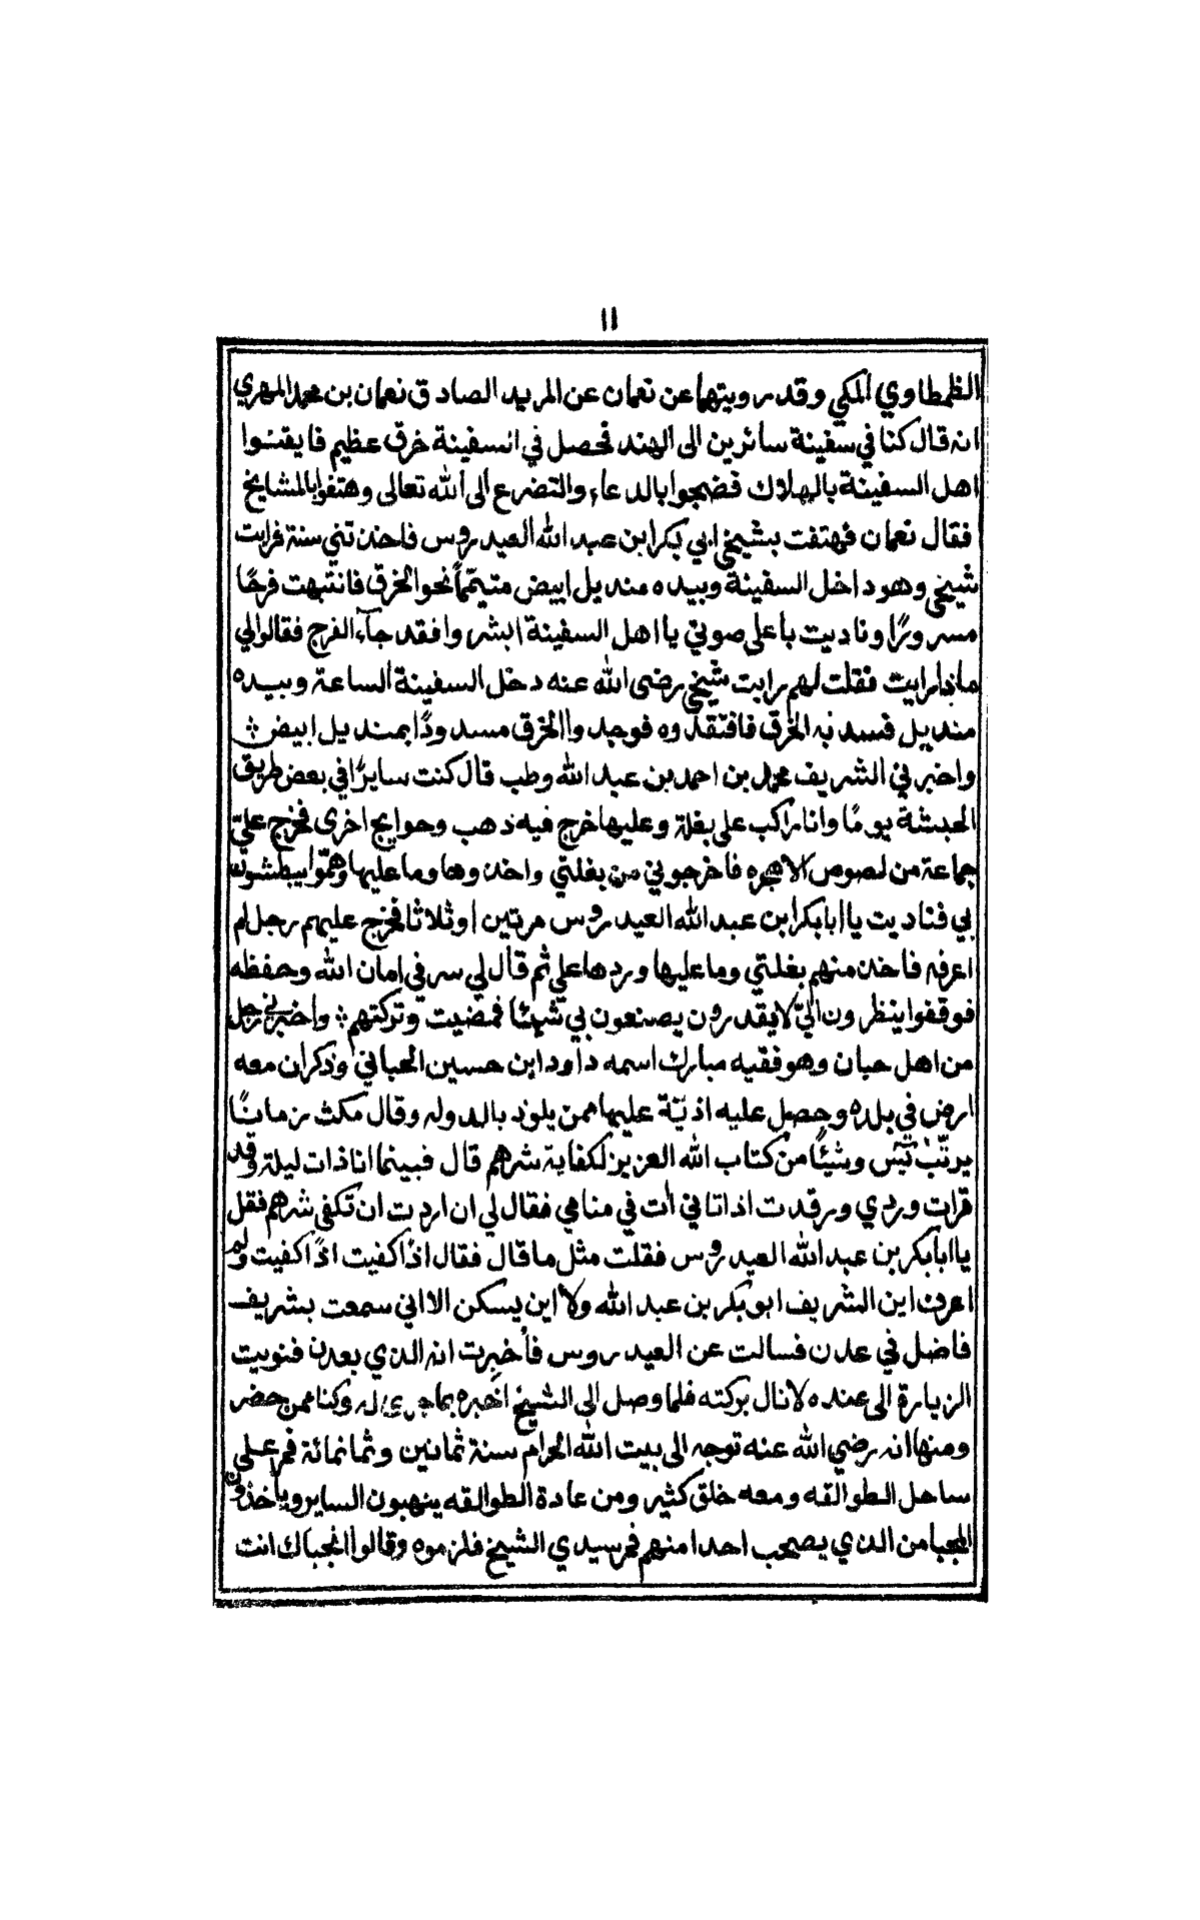 ١١
الظمطاوي المكي وقد رويتها عن نعمان عن المريد الصادق نعمان بن محمد المهري
انه قال كنا في سفينة سائرين الى الهند فحصل في السفينة خرق عظيم فايقنوا
اهل السفينة بالهلاك فضجوا بالدعاء والتضرع الى الله تعالى وهتفوا بالمشايخ
فقال نعمان فهتفت بشيخي ابي بكر ابن عبد الله العيدروس فاخذتني سنة فرايت
شيخي وهو داخل السفينة وبيده منديل ابيض متيمّماً نحو الخرق فانتبهت فرحًا
مسرورًا وناديت باعلى صوتي يا اهل السفينة ابشروا فقد جآء الفرج فقالوا لي
ماذا رايت فقلت لهم رايت شيخي رضى الله عنه دخل السفينة الساعة وبيده
منديل فسد به الخرق فافتقدوه فوجدوا الخرق مسدودًا بمنديل ابيض ؞
واخبرني الشريف محمد بن احمد بن عبد الله وطب قال كنت سايرًا في بعض طريق
الحبشة يومًا وانا راكب على بغلة وعليها خرج فيه ذهب وحوايج اخرى فخرج عليّ
جماعة من لصوص الاهجره فاخرجوني من بغلتي واخذوها وما عليها وهمّوا يبطشون
بي فناديت يا ابا بكر ابن عبد الله العيدروس مرتين او ثلاثا فخرج عليهم رجل لم
اعرفه فاخذ منهم بغلتي وما عليها وردها علي ثم قال لي سر في امان الله وحفظه
فوقفوا ينظرون اليّ لا يقدرون يصنعون بي شيئا فمضيت وتركتهم ؞ واخبرني رجل
من اهل حبان وهو فقيه مبارك اسمه داود ابن حسين الحباني وذكر ان معه
ارض في بلده وحصل عليه اذيّة عليها ممن يلوذ بالدوله وقال مكث زمانًا
يرتّب يٰسٓ وشيئًا من كتاب الله العزيز لكفاية شرهم قال فبينما انا ذات ليلة وقد
قرات وردي ورقدت اذ اتاني اٰت في منامي فقال لي ان اردت ان تكفى شرهم فقل
يا ابا بكر بن عبد الله العيدروس فقلت مثل ما قال فقال اذًا كفيت اذًا كفيت ولم
اعرف اين الشريف ابو بكر بن عبد الله ولا اين يسكن الا اني سمعت بشريف
فاضل في عدن فسالت عن العيدروس فأخبرت انه الذي بعدن فنويت
الزيارة الى عنده لانال بركته فلما وصل الى الشيخ اخبره بما جرى له وكنا ممن حضر
ومنها انه رضي الله عنه توجه الى بيت الله الحرام سنة ثمانين وثمانمائة فمر على
ساحل الطوالقه ومعه خلق كثير ومن عادة الطوالقه ينهبون الساير وياخذون
المجبا من الذي يصحب احدا منهم فمر سيدي الشيخ فلزموه وقالوا انجباك انت